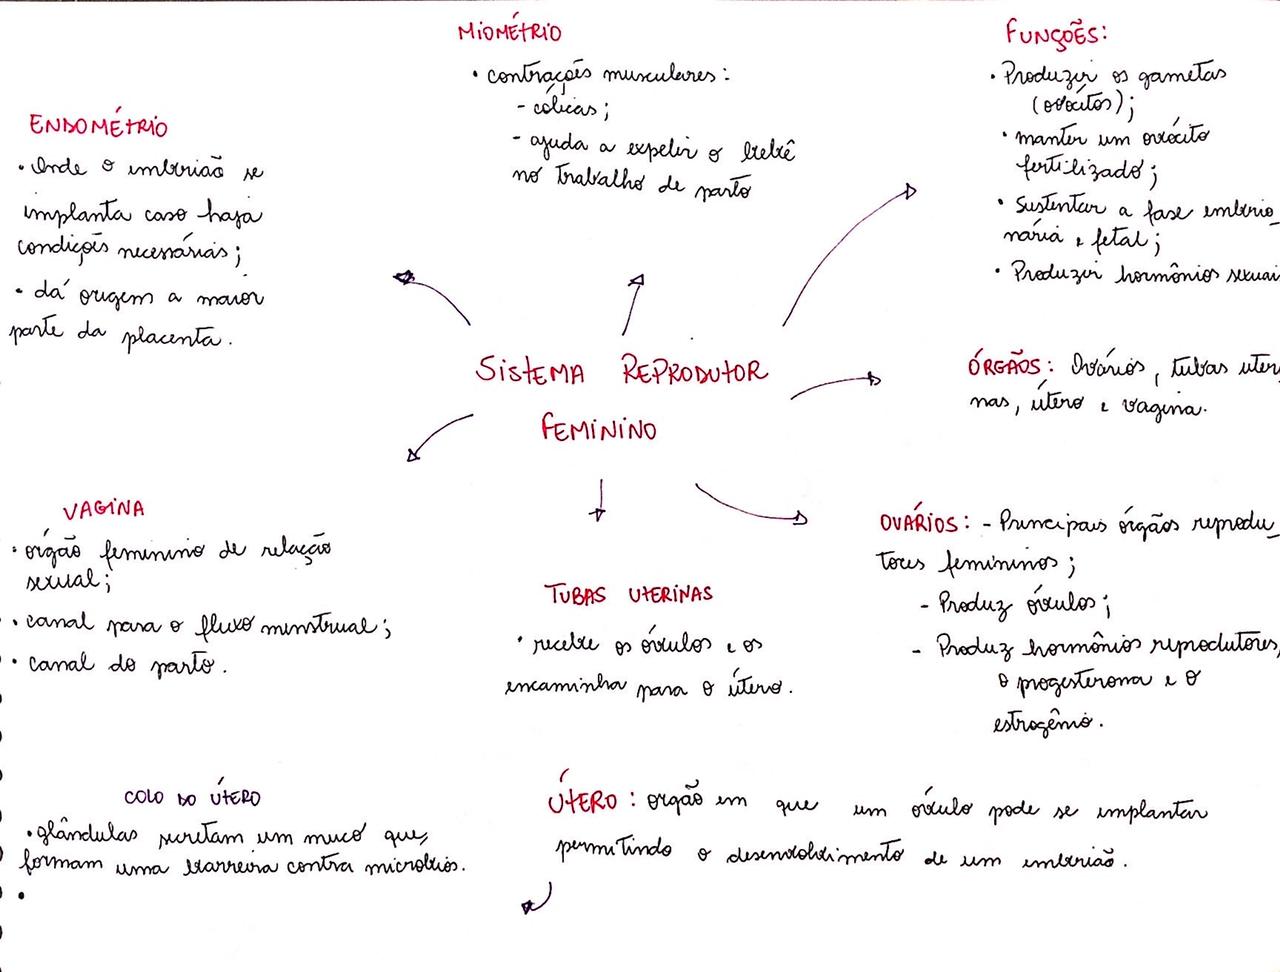 MIOMÉTRIO
• contrações musculares:
- cólicas;
- ajuda a expelir o bebê
no trabalho de parto
FUNÇÕES:
• Produzir os gametas
(ovócitos);
• manter um ovócito
fertilizado;
• Sustentar a fase embrio_
nária e fetal;
• Produzir hormônios sexuai
ENDOMÉTRIO
• Onde o embrião se
implanta caso haja
condições necessárias;
• dá origem a maior
parte da placenta.
SISTEMA REPRODUTOR
FEMININO
ÓRGÃOS: Ovários, tubas uteri
nas, útero e vagina.
VAGINA
• orgão feminino de relação
sexual;
• canal para o fluxo menstrual;
• canal do parto.
TUBAS UTERINAS
• recebe os óvulos e os
encaminha para o útero.
OVÁRIOS: - Principais órgãos reprodu_
tores femininos;
- Produz óvulos;
- Produz hormônios reprodutores,
o progesterona e o
estrogênio.
COLO DO ÚTERO
• glândulas secretam um muco que,
formam uma barreira contra micróbios.
•
ÚTERO: orgão em que um óvulo pode se implantar
permitindo o desenvolvimento de um embrião.